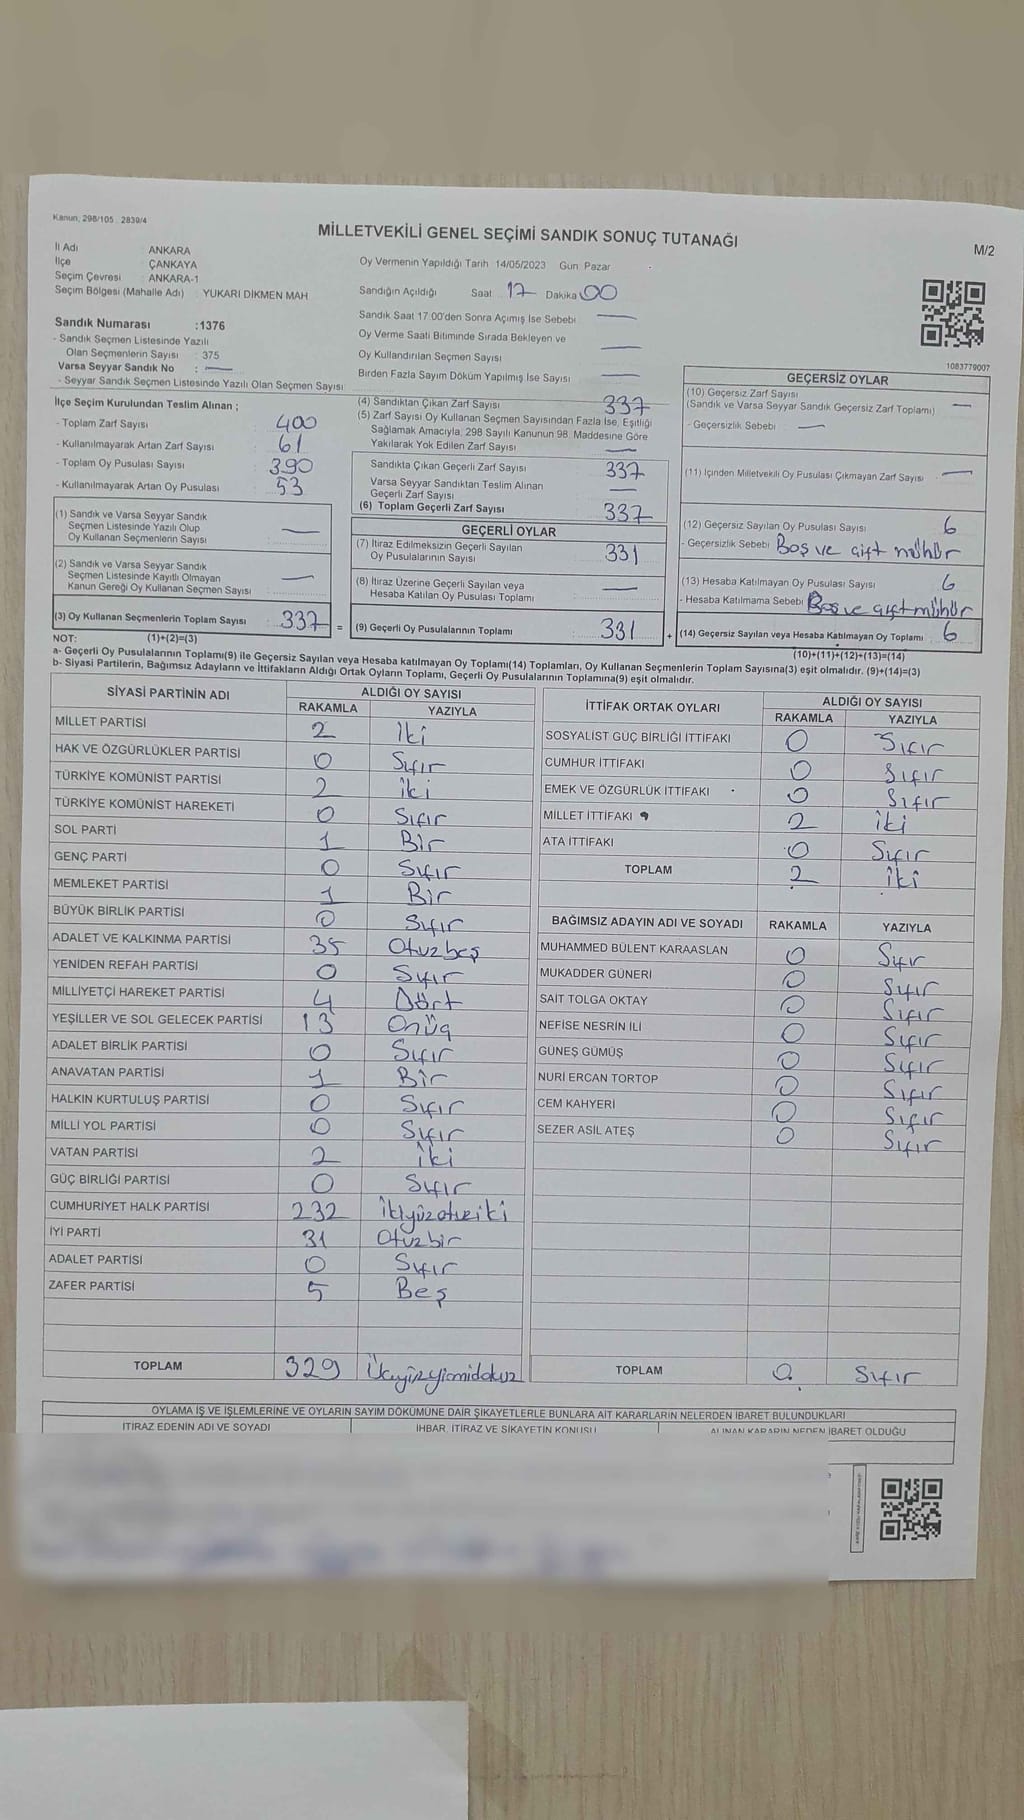 Kanun; 298/105 2839/4
MİLLETVEKİLİ GENEL SEÇİMİ SANDIK SONUÇ TUTANAĞI
M/2
İl Adı ANKARA
İlçe ÇANKAYA
Seçim Çevresi : ANKARA-1
Seçim Bölgesi (Mahalle Adı) : YUKARI DİKMEN MAH
Sandık Numarası :1376
- Sandık Seçmen Listesinde Yazılı
Olan Seçmenlerin Sayısı : 375
Varsa Seyyar Sandık No : —
- Seyyar Sandık Seçmen Listesinde Yazılı Olan Seçmen Sayısı
Oy Vermenin Yapıldığı Tarih 14/05/2023 Gün Pazar
Sandığın Açıldığı Saat 17 Dakika 00
Sandık Saat 17:00'den Sonra Açımış İse Sebebi —
Oy Verme Saati Bitiminde Sırada Bekleyen ve
Oy Kullandırılan Seçmen Sayısı —
Birden Fazla Sayım Döküm Yapılmış İse Sayısı —
1083779007
İlçe Seçim Kurulundan Teslim Alınan ;
- Toplam Zarf Sayısı 400
- Kullanılmayarak Artan Zarf Sayısı 61
- Toplam Oy Pusulası Sayısı 390
- Kullanılmayarak Artan Oy Pusulası 53
(1) Sandık ve Varsa Seyyar Sandık
Seçmen Listesinde Yazılı Olup
Oy Kullanan Seçmenlerin Sayısı —
(2) Sandık ve Varsa Seyyar Sandık
Seçmen Listesinde Kayıtlı Olmayan
Kanun Gereği Oy Kullanan Seçmen Sayısı —
(3) Oy Kullanan Seçmenlerin Toplam Sayısı 337 =
(4) Sandıktan Çıkan Zarf Sayısı 337
(5) Zarf Sayısı Oy Kullanan Seçmen Sayısından Fazla İse, Eşitliği
Sağlamak Amacıyla, 298 Sayılı Kanunun 98. Maddesine Göre
Yakılarak Yok Edilen Zarf Sayısı —
Sandıkta Çıkan Geçerli Zarf Sayısı 337
Varsa Seyyar Sandıktan Teslim Alınan
Geçerli Zarf Sayısı —
(6) Toplam Geçerli Zarf Sayısı 337
GEÇERLİ OYLAR
(7) İtiraz Edilmeksizin Geçerli Sayılan
Oy Pusulalarının Sayısı 331
(8) İtiraz Üzerine Geçerli Sayılan veya
Hesaba Katılan Oy Pusulası Toplamı —
(9) Geçerli Oy Pusulalarının Toplamı 331 +
GEÇERSİZ OYLAR
(10) Geçersiz Zarf Sayısı
(Sandık ve Varsa Seyyar Sandık Geçersiz Zarf Toplamı) —
- Geçersizlik Sebebi : —
(11) İçinden Milletvekili Oy Pusulası Çıkmayan Zarf Sayısı —
(12) Geçersiz Sayılan Oy Pusulası Sayısı 6
- Geçersizlik Sebebi Boş ve çift mühür
(13) Hesaba Katılmayan Oy Pusulası Sayısı 6
- Hesaba Katılmama Sebebi Boş ve çift mühür
(14) Geçersiz Sayılan veya Hesaba Katılmayan Oy Toplamı 6
NOT: (1)+(2)=(3)
(10)+(11)+(12)+(13)=(14)
a- Geçerli Oy Pusulalarının Toplamı(9) ile Geçersiz Sayılan veya Hesaba katılmayan Oy Toplamı(14) Toplamları, Oy Kullanan Seçmenlerin Toplam Sayısına(3) eşit olmalıdır. (9)+(14)=(3)
b- Siyasi Partilerin, Bağımsız Adayların ve İttifakların Aldığı Ortak Oyların Toplamı, Geçerli Oy Pusulalarının Toplamına(9) eşit olmalıdır.
SİYASİ PARTİNİN ADI ALDIĞI OY SAYISI
RAKAMLA YAZIYLA
MİLLET PARTİSİ 2 İki
HAK VE ÖZGÜRLÜKLER PARTİSİ 0 Sıfır
TÜRKİYE KOMÜNİST PARTİSİ 2 iki
TÜRKİYE KOMÜNİST HAREKETİ 0 Sıfır
SOL PARTİ 1 Bir
GENÇ PARTİ 0 Sıfır
MEMLEKET PARTİSİ 1 Bir
BÜYÜK BİRLİK PARTİSİ 0 Sıfır
ADALET VE KALKINMA PARTİSİ 35 Otuzbeş
YENİDEN REFAH PARTİSİ 0 Sıfır
MİLLİYETÇİ HAREKET PARTİSİ 4 Dört
YEŞİLLER VE SOL GELECEK PARTİSİ 13 Onüç
ADALET BİRLİK PARTİSİ 0 Sıfır
ANAVATAN PARTİSİ 1 Bir
HALKIN KURTULUŞ PARTİSİ 0 Sıfır
MİLLİ YOL PARTİSİ 0 Sıfır
VATAN PARTİSİ 2 iki
GÜÇ BİRLİĞİ PARTİSİ 0 Sıfır
CUMHURİYET HALK PARTİSİ 232 ikiyüzotuziki
İYİ PARTİ 31 Otuzbir
ADALET PARTİSİ 0 Sıfır
ZAFER PARTİSİ 5 Beş
TOPLAM 329 Üçyüzyirmidokuz
İTTİFAK ORTAK OYLARI ALDIĞI OY SAYISI
RAKAMLA YAZIYLA
SOSYALİST GÜÇ BİRLİĞİ İTTİFAKI 0 Sıfır
CUMHUR İTTİFAKI 0 Sıfır
EMEK VE ÖZGÜRLÜK İTTİFAKI 0 Sıfır
MİLLET İTTİFAKI 2 iki
ATA İTTİFAKI 0 Sıfır
TOPLAM 2 iki
BAĞIMSIZ ADAYIN ADI VE SOYADI RAKAMLA YAZIYLA
MUHAMMED BÜLENT KARAASLAN 0 Sıfır
MUKADDER GÜNERİ 0 Sıfır
SAİT TOLGA OKTAY 0 Sıfır
NEFİSE NESRİN İLİ 0 Sıfır
GÜNEŞ GÜMÜŞ 0 Sıfır
NURİ ERCAN TORTOP 0 Sıfır
CEM KAHYERİ 0 Sıfır
SEZER ASİL ATEŞ 0 Sıfır
TOPLAM 0 Sıfır
OYLAMA İŞ VE İŞLEMLERİNE VE OYLARIN SAYIM DÖKÜMÜNE DAİR ŞİKAYETLERLE BUNLARA AİT KARARLARIN NELERDEN İBARET BULUNDUKLARI
İTİRAZ EDENİN ADI VE SOYADI İHBAR, İTİRAZ VE ŞİKAYETİN KONUSU ALINAN KARARIN NEDEN İBARET OLDUĞU